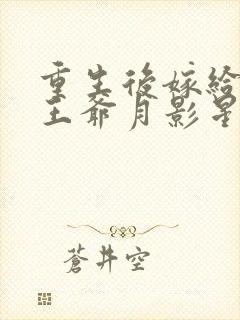 重生後嫁給
王爺月影星
蒼井空